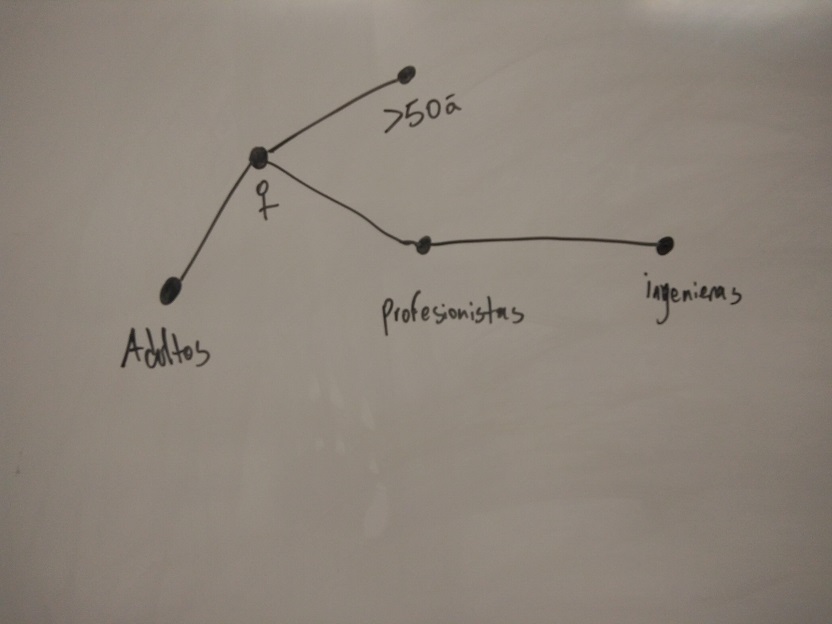 >50a
♀
Adultos
profesionistas
ingenieras